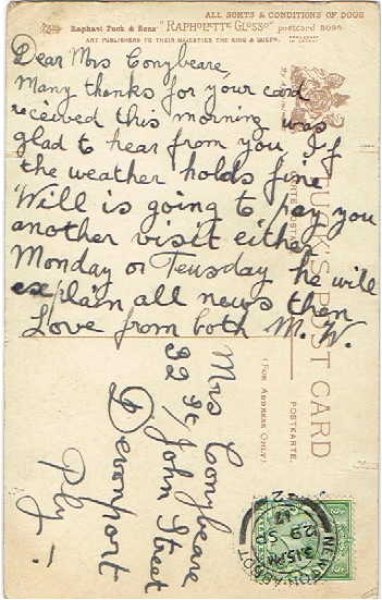 ALL SORTS & CONDITIONS OF DOGS
Raphael Tuck & Sons' "RAPHOLETTE GLOSSO" POSTCARD 8096
ART PUBLISHERS TO THEIR MAJESTIES THE KING & QUEEN.
Dear Mrs Conybeare,
Many thanks for your card
received this morning was
glad to hear from you, If
the weather holds fine
Will is going to pay you
another visit either
Monday or Teusday he will
explain all news then
Love from both M. W.
TUCK'S POST CARD
CARTE POSTALE
POSTKARTE
(FOR ADDRESS ONLY)
Mrs Conybeare
92 St John Street
Devonport
Ply -
NEWTON ABBOT
3.15 PM
29 SP